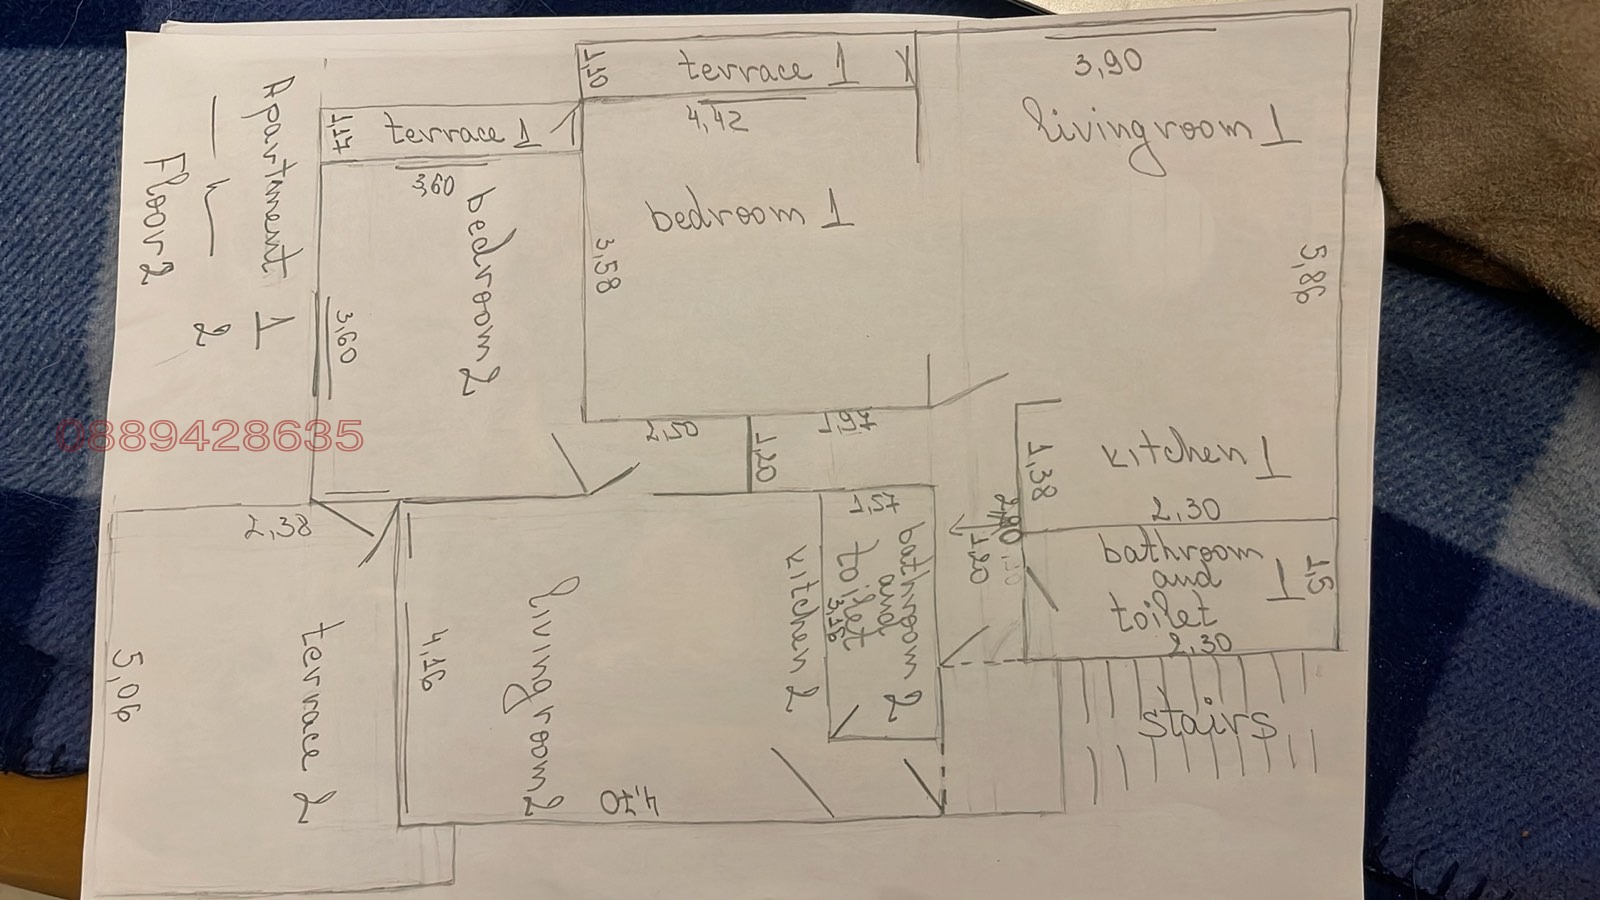 1,10
terrace 1
3,90
livingroom 1
4,42
1,17
terrace 1
3,60
bedroom 1
bedroom 2
3,58
3,60
5,86
Apartment 1
2
Floor 2
0889428635
2,50
1,97
1,20
1,38
kitchen 1
2,30
bathroom
and
toilet
1
1,5
2,30
1,20
1,57
bathroom 2
and
toilet
3,16
kitchen 2
2,38
livingroom 2
4,16
4,70
terrace 2
5,06
stairs